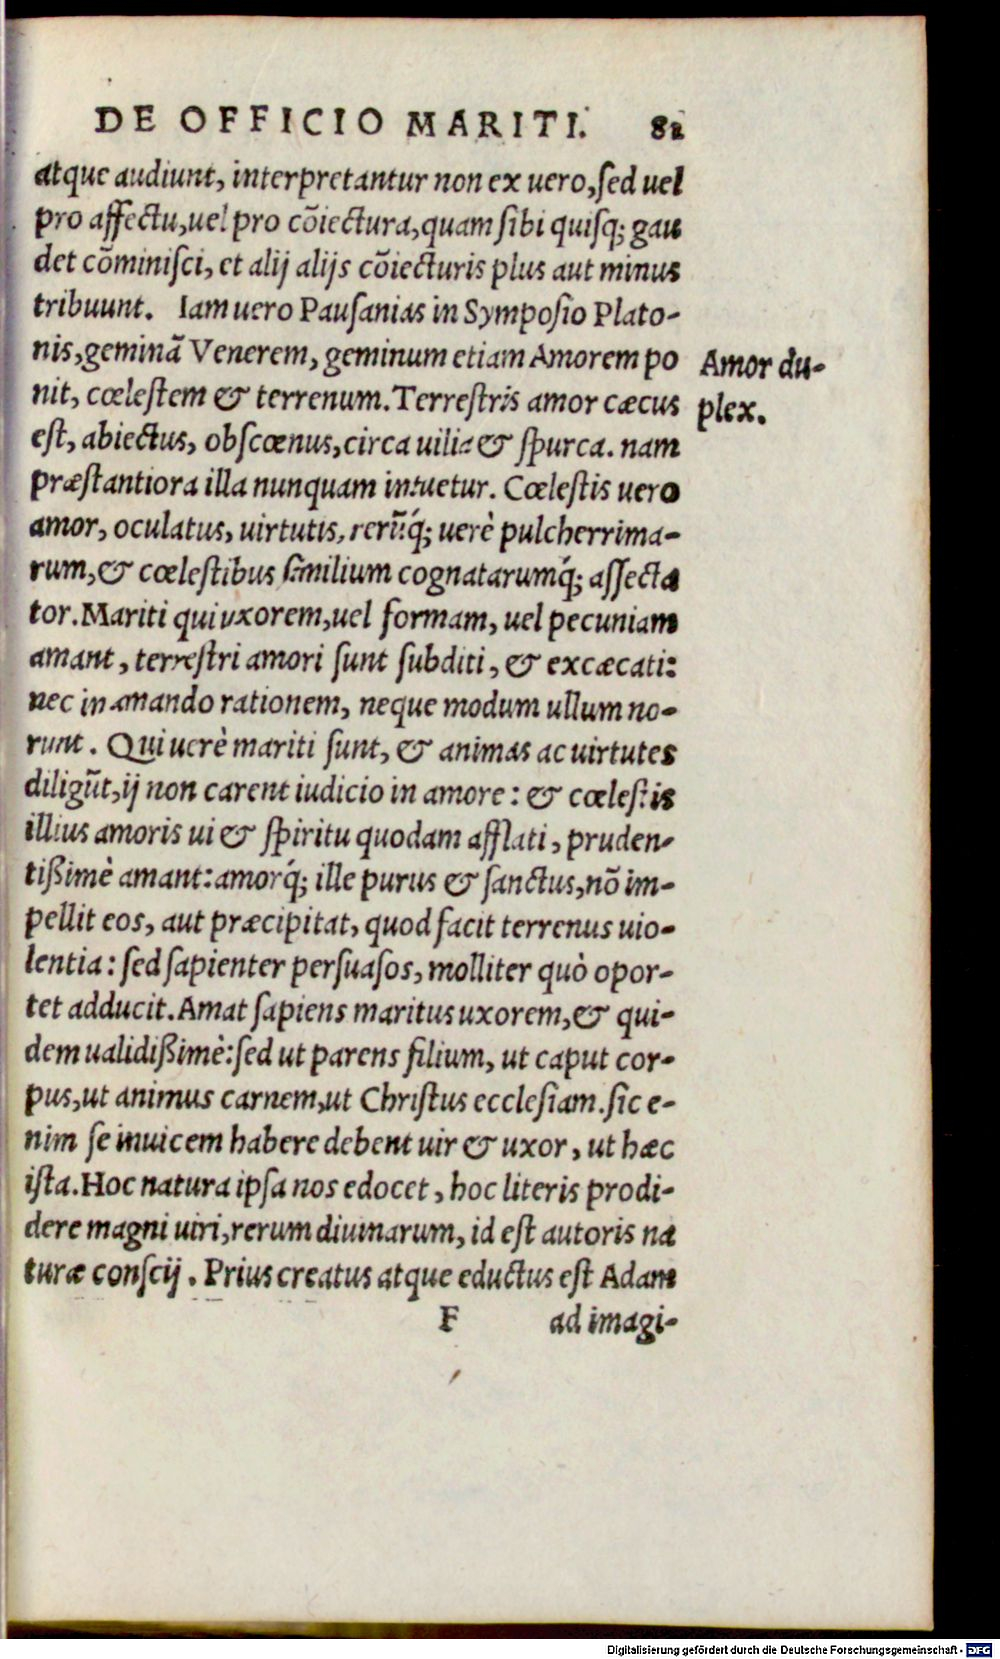 DE OFFICIO MARITI. 81
atque audiunt, interpretantur non ex uero, sed uel
pro affectu, uel pro cõiectura, quam sibi quisq; gau
det cõminisci, et alij alijs cõiecturis plus aut minus
tribuunt. Iam uero Pausanias in Symposio Plato-
nis, geminã Venerem, geminum etiam Amorem po
nit, cœlestem & terrenum. Terrestris amor cæcus
est, abiectus, obscœnus, circa uilia & spurca. nam
præstantiora illa nunquam intuetur. Cœlestis uero
amor, oculatus, uirtutis, rerũq́; uerè pulcherrima-
rum, & cœlestibus similium cognatarumq́; assecta
tor. Mariti qui uxorem, uel formam, uel pecuniam
amant, terrestri amori sunt subditi, & excæcati:
nec in amando rationem, neque modum ullum no-
runt. Qui uerè mariti sunt, & animas ac uirtutes
diligũt, ij non carent iudicio in amore: & cœlestis
illius amoris ui & spiritu quodam afflati, pruden-
tißimè amant: amorq́; ille purus & sanctus, nõ im-
pellit eos, aut præcipitat, quod facit terrenus uio-
lentia: sed sapienter persuasos, molliter quò opor-
tet adducit. Amat sapiens maritus uxorem, & qui-
dem ualidißimè: sed ut parens filium, ut caput cor-
pus, ut animus carnem, ut Christus ecclesiam. sic e-
nim se inuicem habere debent uir & uxor, ut hæc
ista. Hoc natura ipsa nos edocet, hoc literis prodi-
dere magni uiri, rerum diuinarum, id est autoris na
turæ conscij. Prius creatus atque eductus est Adam
F ad imagi-
Amor du-
plex.
Digitalisierung gefördert durch die Deutsche Forschungsgemeinschaft - DFG